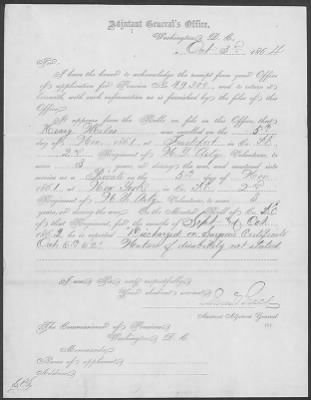 Adjutant General's Office,
Washington, D. C.
Oct 3d 1864
Sir:
I have the honor to acknowledge the receipt from your Office
of application for Pension No 49,300, and to return it
herewith, with such information as is furnished by the files of this
Office.
It appears from the Rolls on file in this Office, that
Henry was enrolled on the 5th
day of Nov, 1861, at in Co.
2nd Regiment of Volunteers, to
serve 3 years, or during the war, and mustered into
service as a Private on the 5th day of Nov
1861, at New York, in Co. 2nd
Regiment of Volunteers, to serve 3
years, or during the war. On the Muster Roll of Co.
of that Regiment, for the months of Sept & Oct
1862, he is reported Discharged on Surgeons Certificate
Oct 6th 62. Nature of disability not stated
I am, Sir, very respectfully,
Your obedient servant,
Assistant Adjutant General.
The Commissioner of Pensions,
Washington, D. C.
Memoranda:
Name of applicant,
Address,